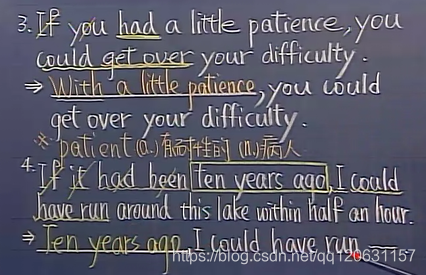 3. If you had a little patience, you
could get over your difficulty.
⇒ With a little patience, you could
get over your difficulty.
※ patient (a.) 有耐性的 (n.) 病人
4. If it had been Ten years ago, I could
have run around this lake within half an hour.
⇒ Ten years ago, I could have run
https://blog.csdn.net/qq120631157